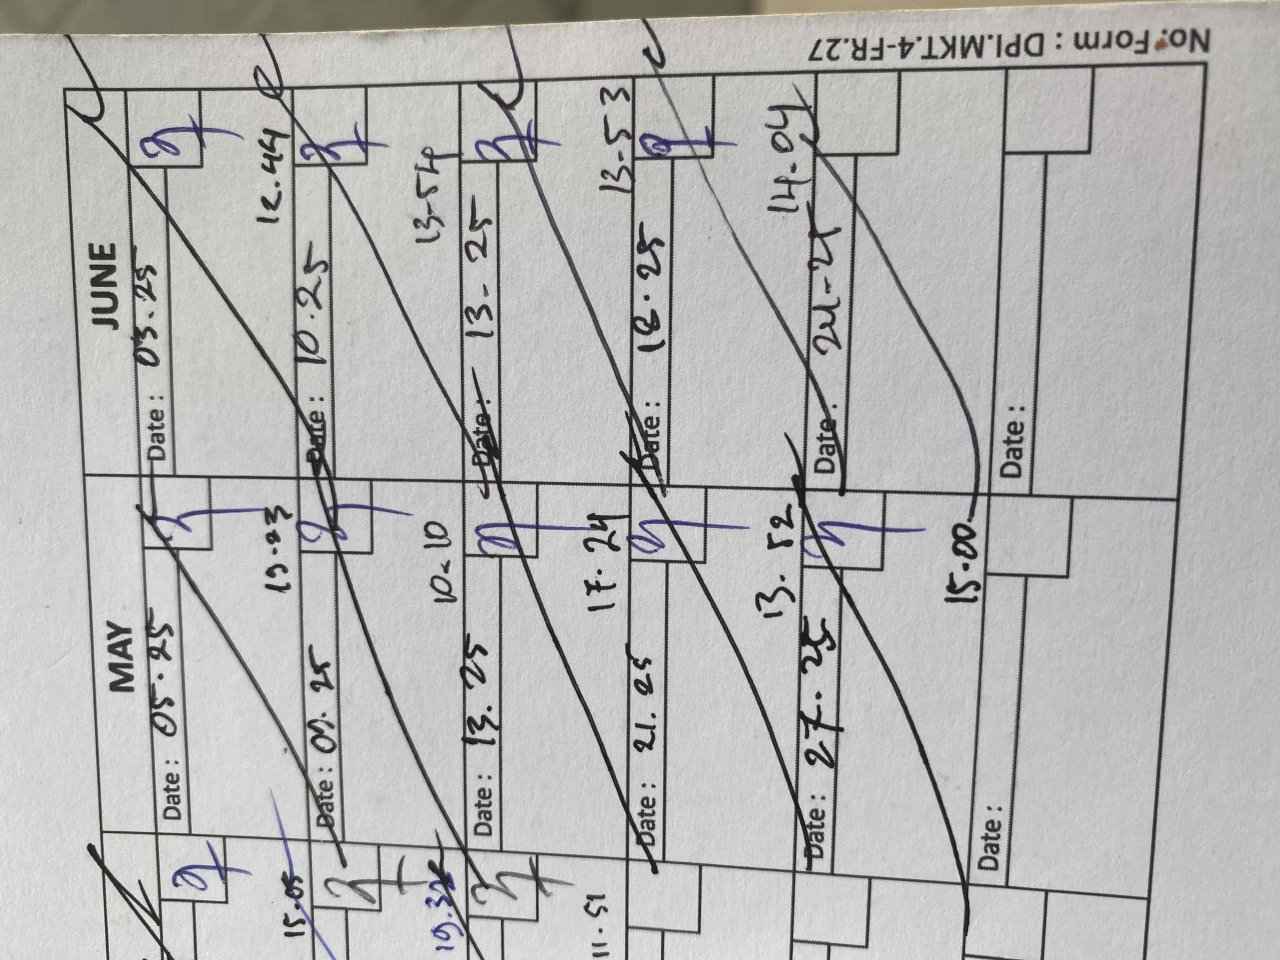 No. Form : DPI.MKT.4-FR.27
MAY
JUNE
Date : 05.25
Date : 03.25
15.05
19.23
12.44
Date : 09.25
Date : 10.25
10-10
13-54
Date : 13.25
Date : 13-25
11.51
17.24
13-53
Date : 21.25
Date : 18.25
13.52
14.04
Date : 27.25
Date : 24-25
15.00
Date :
Date :